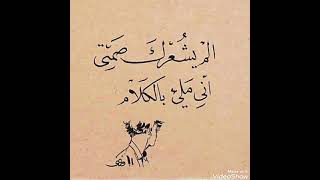 ألم يشعرك صمتي
أني مليئ بالكلام
Made with
VideoShow